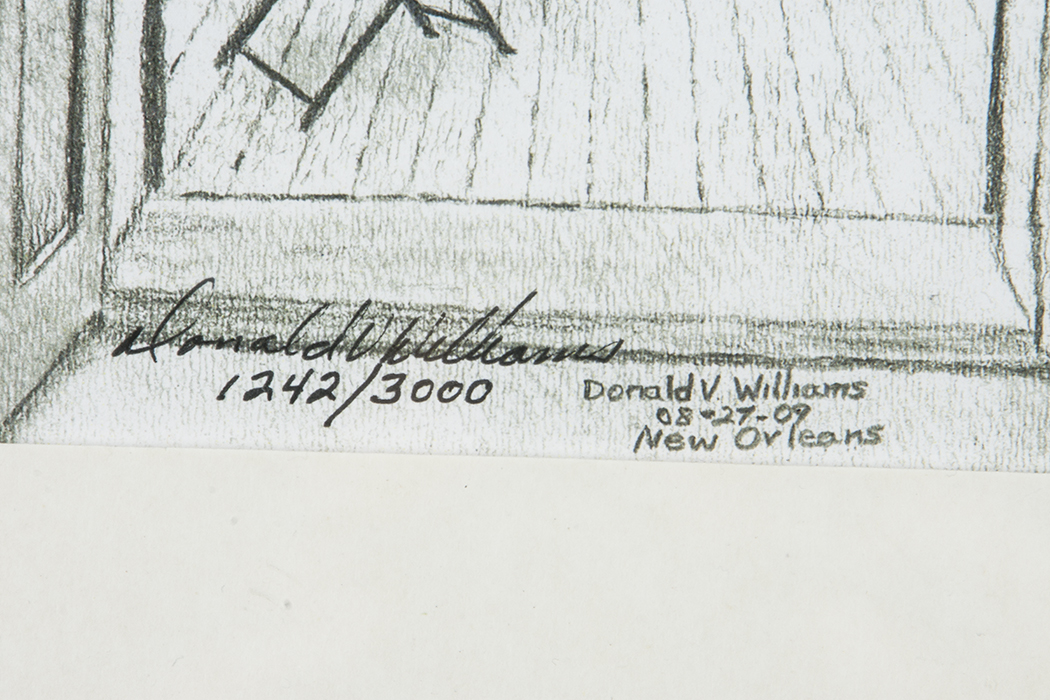 Donald V Williams
1242/3000
Donald V. Williams
08-27-07
New Orleans